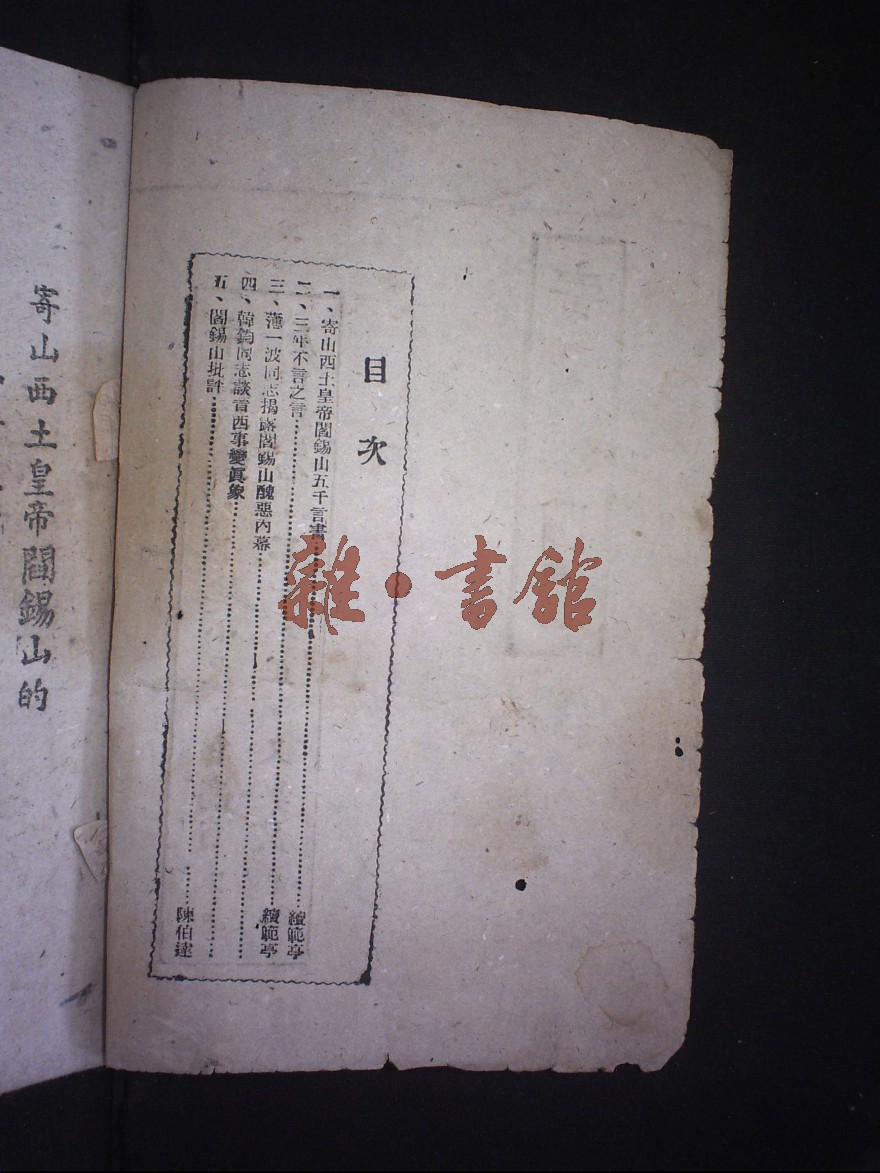 目次
一、寄山西土皇帝閻錫山五千言書……續範亭
二、三年不言之言……續範亭
三、薄一波同志揭露閻錫山醜惡內幕……
四、韓鈞同志談晋西事變眞象……
五、閻錫山批評……陳伯達
寄山西土皇帝閻錫山的
雜·書館